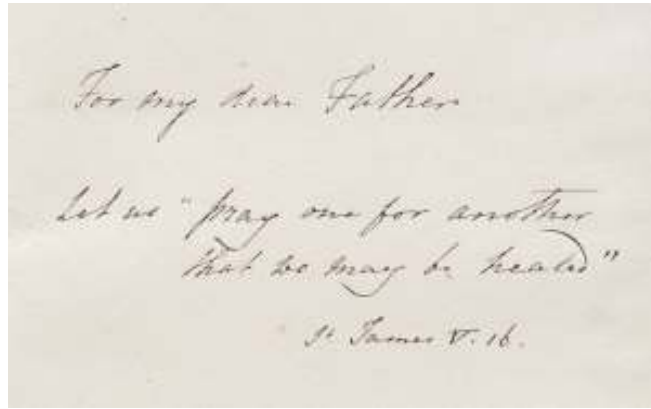 For my dear Father
Let us "pray one for another
that we may be healed"
St James V. 16.